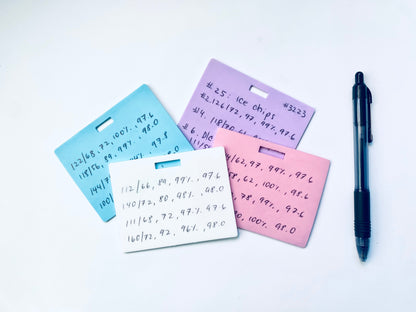 122/68, 72, 100%, 97.6
118/56, 89, 99%, 98.0
144/7 97.8
100/
#25: ice chips
#3223
#2. 126/72, 97, 99%, 97.6
#4. 118/70
#6. D/c
112/66, 89, 99%, 97.6
140/72, 80, 98%, 98.0
111/68, 72, 97%, 97.6
160/72, 92, 96%, 98.0
4/62, 97, 99%, 97.6
58, 62, 100%, 98.6
78, 99%, 97.6
100%, 98.0